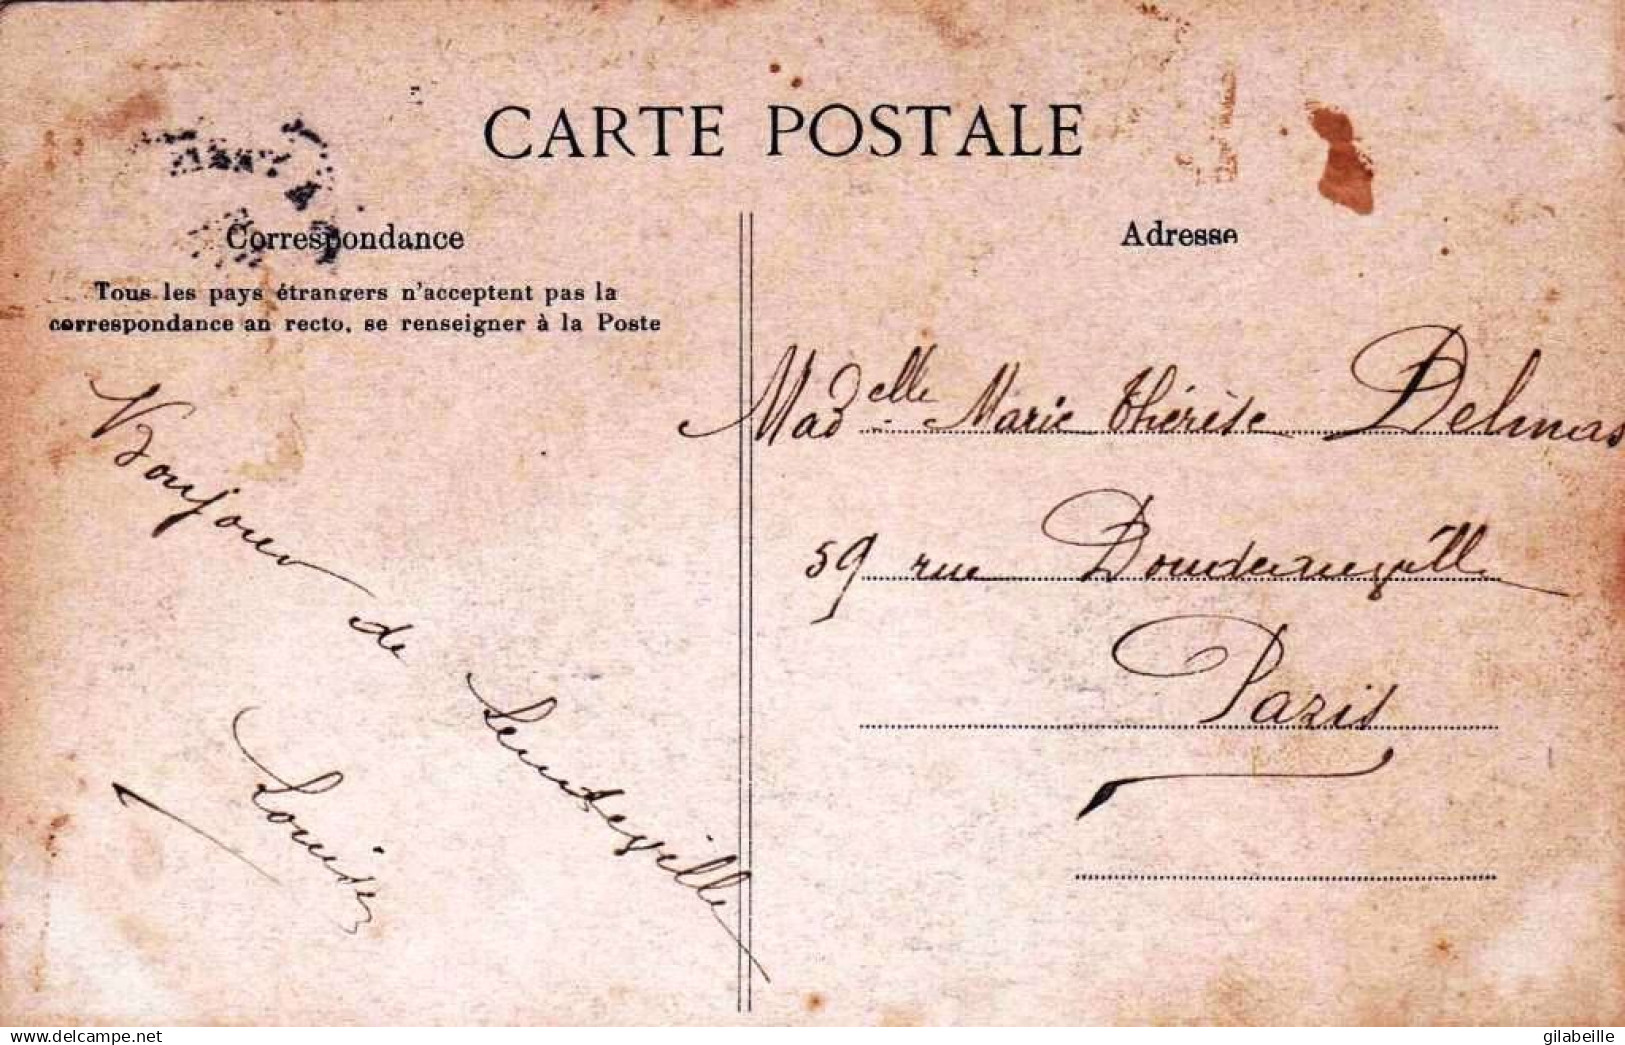 CARTE POSTALE
Correspondance
Tous les pays étrangers n'acceptent pas la
correspondance au recto, se renseigner à la Poste
Bonjour de
Louise
Adresse
Madelle Marie Thérèse Delmas
59 rue Doudeauville
Paris
delcampe.net
gilabeille